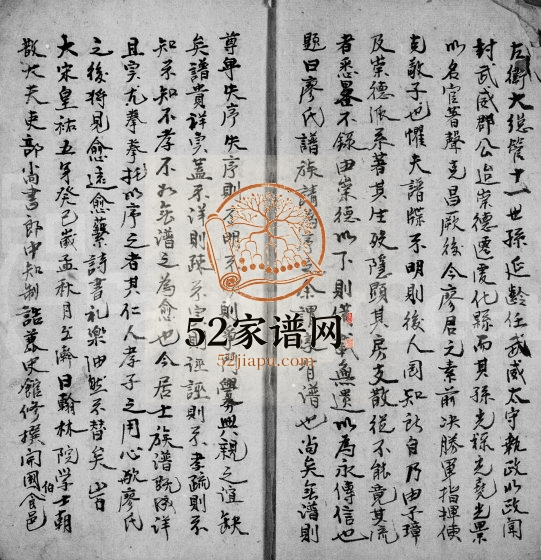 左衛大總管十一世孫延齡任武威太守執政以政聞
封武威郡公迨崇德遷虔化縣而其孫光祿光堯光景
以名宦著聲克昌厥後今廖居元素前決勝軍指揮使
克敬子也懼夫譜牒不明則後人罔知所自乃由子璋
及崇德派系著其生歿隱顯其房支散從不能竟其流
者悉畧不錄由崇德以下則無遺以為永傳信也
題曰廖氏譜族請為序之余謂
譜也尚矣無譜則
尊卑失序失序則不明不
則
親之誼缺
矣譜貴詳實蓋不詳則疎不實則誣誣則不孝疏則不
知不知不孝不如無譜之為愈也今居士族譜既成詳
且實尤拳拳托以序之者其仁人孝子之用心歟廖氏
之後將見愈遠愈蕃詩書禮樂油然不替矣 旹
大宋皇祐五年癸巳歲孟秋月之濟日翰林院學士朝
散大夫吏部尚書郎中知制誥兼史館修撰開國伯食邑
52家谱网
52jiapu.com